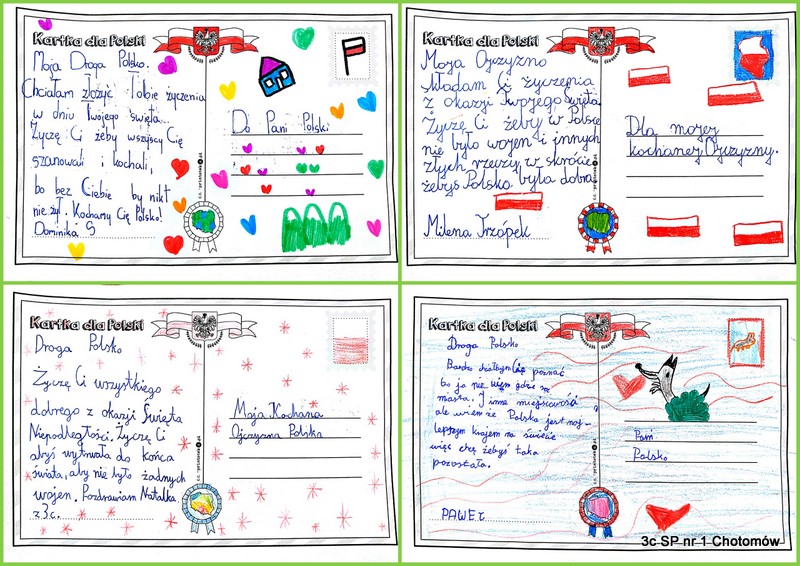 Kartka dla Polski
Moja Droga Polsko.
Chciałam złożyć Tobie życzenia
w dniu Twojego święta.
Życzę Ci żeby wszyscy Cię
szanowali i kochali,
bo bez Ciebie by nikt
nie żył. Kochamy Cię Polsko!
Dominika S
Do Pani Polski
Kartka dla Polski
Moja Ojczyzno
składam Ci życzenia
z okazji Twojego Święta
Życzę Ci żeby w Polsce
nie było wojen i innych
złych rzeczy w skrócie
żebyś Polsko była dobra
Milena Trzópek
Dla mojej
kochanej Ojczyzny.
Kartka dla Polski
Droga Polsko
Życzę Ci wszystkiego
dobrego z okazji Święta
Niepodległości. Życzę Ci
abyś wytrwała do końca
świata, aby nie było żadnych
wojen. Pozdrawiam Natalka
z 3c.
Moja Kochana
Ojczyzna Polska
Kartka dla Polski
Droga Polsko
Bardzo chciałbym Cię poznać
bo ja nie wiem gdzie są
miasta. I inne miejscowości
ale wiem że Polska jest naj-
lepszym krajem na świecie
więc chcę żebyś taka
pozostała.
PAWEŁ
Pani
Polska
3c SP nr 1 Chotomów